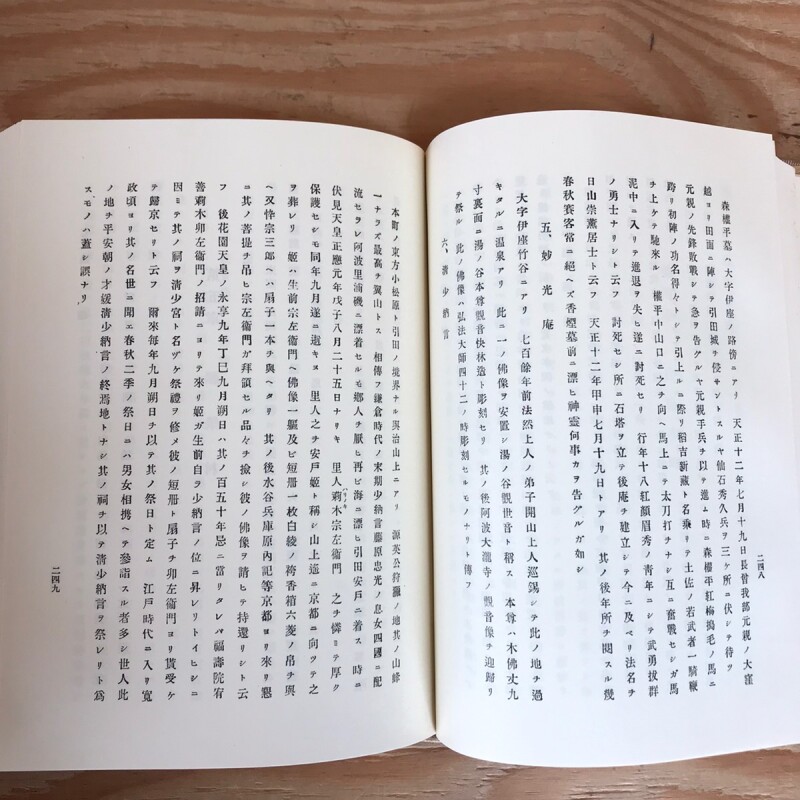 森權平墓ハ大字伊座ノ路傍ニアリ　天正十二年七月十九日長曾我部元親ノ大窪
越ヨリ田面ニ陣シテ引田城チ侵サントスルヤ仙石秀久兵ヲ三ケ所ニ伏シテ待ツ
元親ノ先鋒敗戰シテ急ヲ告グルヤ元親手兵チ以テ進ム時ニ森權平紅梅搗毛ノ馬ニ
跨リ初陣ノ功名得々トシテ引上ルニ際リ稻吉新藏ト名乘リテ土佐ノ若武者一騎鞭
チ上ケテ馳來ル　權平中山口ニ之チ向ヘ馬上ニテ太刀打チナシ互ニ奮戰セシガ馬
泥中ニ入リテ進退ヲ失ヒ遂ニ討死セリ　行年十八紅顏眉秀ノ靑年ニシテ武勇拔群
ノ勇士ナリシト云フ　討死セシ所ニ石塔ヲ立テ後庵チ建立シテ今ニ及ベリ法名チ
日山崇薰居士ト云フ　天正十二年甲申七月十九日トアリ　其ノ後年所チ閱スル幾
春秋賽客常ニ絕ヘズ香煙墓前ニ漂ヒ神靈何事カヲ告グルガ如シ
五、妙光庵
大字伊座竹谷ニアリ　七百餘年前法然上人ノ弟子開山上人巡錫シテ此ノ地チ過
キタルニ溫泉アリ　此ニ一ノ佛像ヲ安置シ湯ノ谷觀世音ト稱ス　本尊ハ木佛丈九
寸裏面ニ湯ノ谷本尊觀音快林造ト彫刻セリ　其ノ後阿波大瀧寺ノ觀音像チ迎歸リ
テ祭ル　此ノ佛像ハ弘法大師四十二ノ時彫刻セルモノナリト傳フ
六、淸少納言
二四八
本町ノ東方小松原ト引田ノ境界ナル與治山上ニアリ　源英公狩獵ノ地其ノ山緣
一ナラズ最高チ翼山トス　相傳フ鎌倉時代ノ末期少納言藤原忠光ノ息女四國ニ配
流セラレ阿波里浦磯ニ漂着セルモ鄕人チ厭ヒ再ビ海ニ漂ヒ引田安戸ニ着ス　時ニ
伏見天皇正應元年戊子八月二十五日ナリキ　里人莿木宗左衞門　之チ憐ミテ厚ク
保護セシモ同年九月遂ニ逝キヌ　里人之チ安戸姬ト稱シ山上遙ニ京都ニ向ヲテ之
ヲ葬レリ　姬ハ生前宗左衞門ヘ佛像一軀及ビ短册一枚白綾ノ袴香箱六菱ノ帛チ與
ヘ又忰宗三郎ヘハ扇子一本チ與ヘタリ　其ノ後水谷兵庫原內記等京都ヨリ來リ懇
ロ其ノ菩提チ弔ヒ宗左衞門ガ拜領セル品々チ撿シ彼ノ佛像ヲ請ヒテ持還リシト云
フ　後花園天皇ノ永享九年丁巳九月朔日ハ其ノ百五十年忌ニ當リタレバ福壽院宥
善莿木卯左衞門ノ招請ニヨリテ來リ姬ガ生前自ヲ少納言ノ位ニ昇レリトイヒシニ
因ミテ其ノ祠ヲ淸少宮ト名ヅケ祭禮ヲ修メ彼ノ短册ト扇子チ卯左衞門ヨリ貰受ケ
テ歸京セリト云フ　爾來每年九月朔日チ以テ其ノ祭日ト定ム　江戸時代ニ入リ寬
政頃ヨリ其ノ名世ニ聞エ春秋二季ノ祭日ニハ男女相携ヘテ參詣スル者多シ世人此
ノ地チ平安朝ノ才媛淸少納言ノ終焉地トナシ其ノ祠チ以テ淸少納言ヲ祭レリト爲
スモノハ蓋シ誤ナリ
二四九